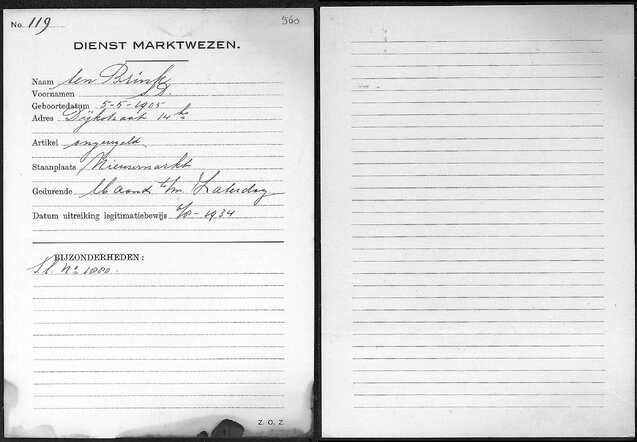 No. 119 560
DIENST MARKTWEZEN.
Naam ten Brink
Voornamen D.
Geboortedatum 5-5-1905
Adres Dijkstraat 14
Artikel ongeregeld
Staanplaats Nieuwmarkt
Gedurende Maand t/m Zaterdag
Datum uitreiking legitimatiebewijs -1934
BIJZONDERHEDEN:
No 1000.
Z. O. Z.